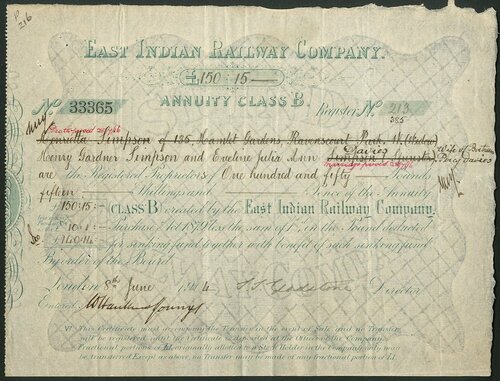 216
EAST INDIAN RAILWAY COMPANY.
£150.15
ANNUITY CLASS B.
No 33365
Register No 213
385
Henrietta Simpson of 135, Hamlet Gardens, Ravenscourt Park W. (Widow)
Henry Gardner Simpson and Eveline Julia Ann Simpson Davies Wife of
are the Registered Proprietors of One hundred and fifty Pounds
fifteen Shillings and Pence of the Annuity
£150:15:- CLASS B created by the East Indian Railway Company
Purchase Act 1879 less the sum of in the Pound deducted
£140.14 for sinking fund together with benefit of such sinking fund.
By order of the Board.
London 8th June Director
Entered
This Certificate must accompany the Transfer in the event of Sale, and no Transfer
will be registered until the Certificate is deposited at the Office of the Company.
Fractional portions of £1 originally allotted to a Stock Holder in the Company only may
be transferred. Except as above, no Transfer may be made of any fractional portion of £1.